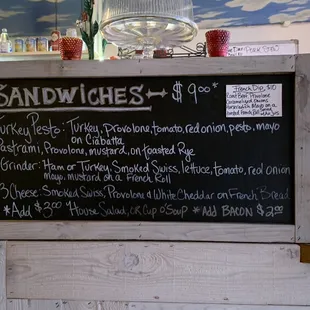 SANDWICHES — $9.00*
French Dip $10
Roast Beef, Provolone
Caramelized Onions
Turkey Pesto: Turkey, Provolone, tomato, red onion, pesto, mayo
on Ciabatta
Pastrami, Provolone, mustard, on toasted Rye
Grinder: Ham or Turkey, Smoked Swiss, lettuce, tomato, red onion
Mayo, mustard on a French Roll
3 Cheese: Smoked Swiss, Provolone & White Cheddar on French Bread
*Add $3.00 House Salad, or Cup o'Soup *Add BACON $2.00